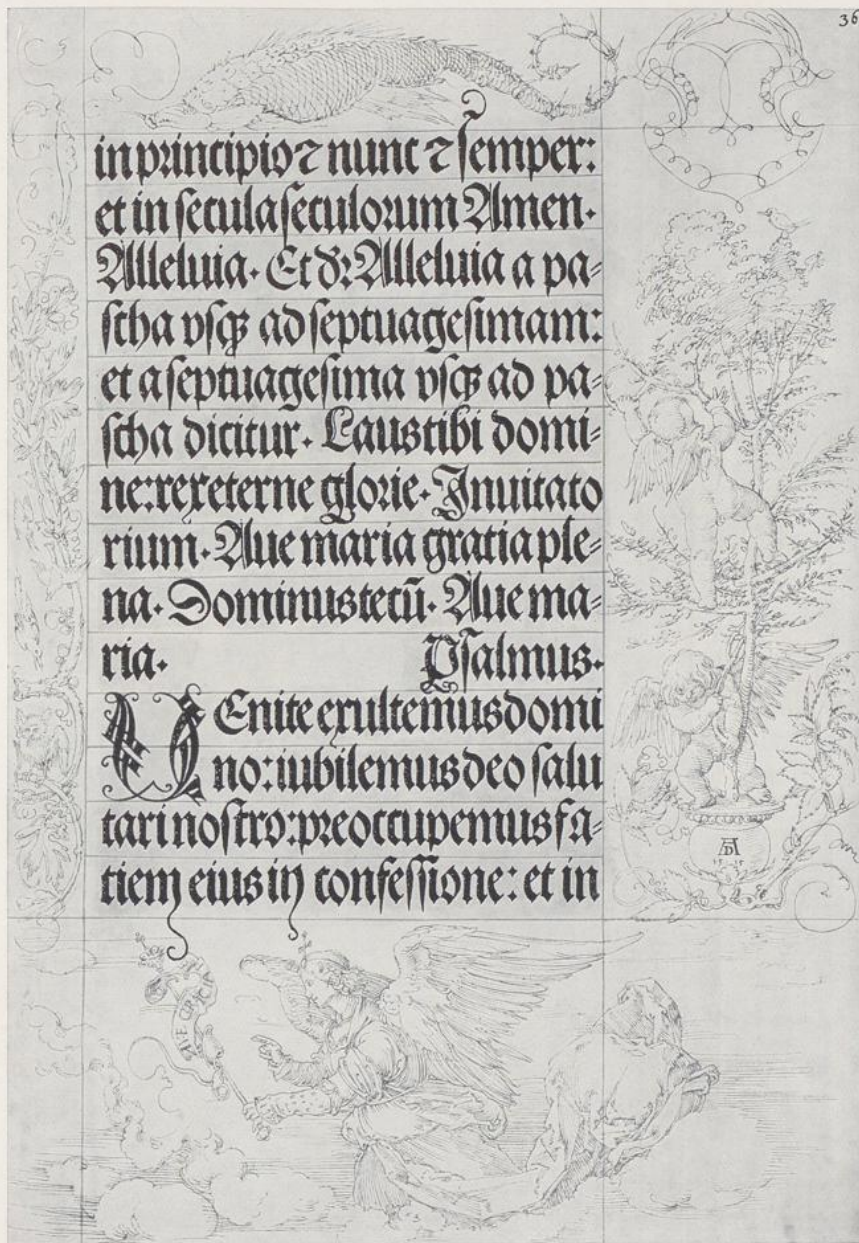 36
in principio ⁊ nunc ⁊ semper:
et in secula seculorum Amen.
Alleluia. Et dꝛ: Alleluia a pa⸗
scha vsqꝫ ad septuagesimam:
et a septuagesima vsqꝫ ad pa⸗
scha dicitur. Laus tibi domi⸗
ne: rex eterne glorie. Inuitato
rium. Aue maria gratia ple⸗
na. Dominus tecū. Aue ma⸗
ria. Psalmus.
VEnite exultemus domi
no: iubilemus deo salu
tari nostro: preoccupemus fa⸗
ciem eius in confessione: et in
AD
1515